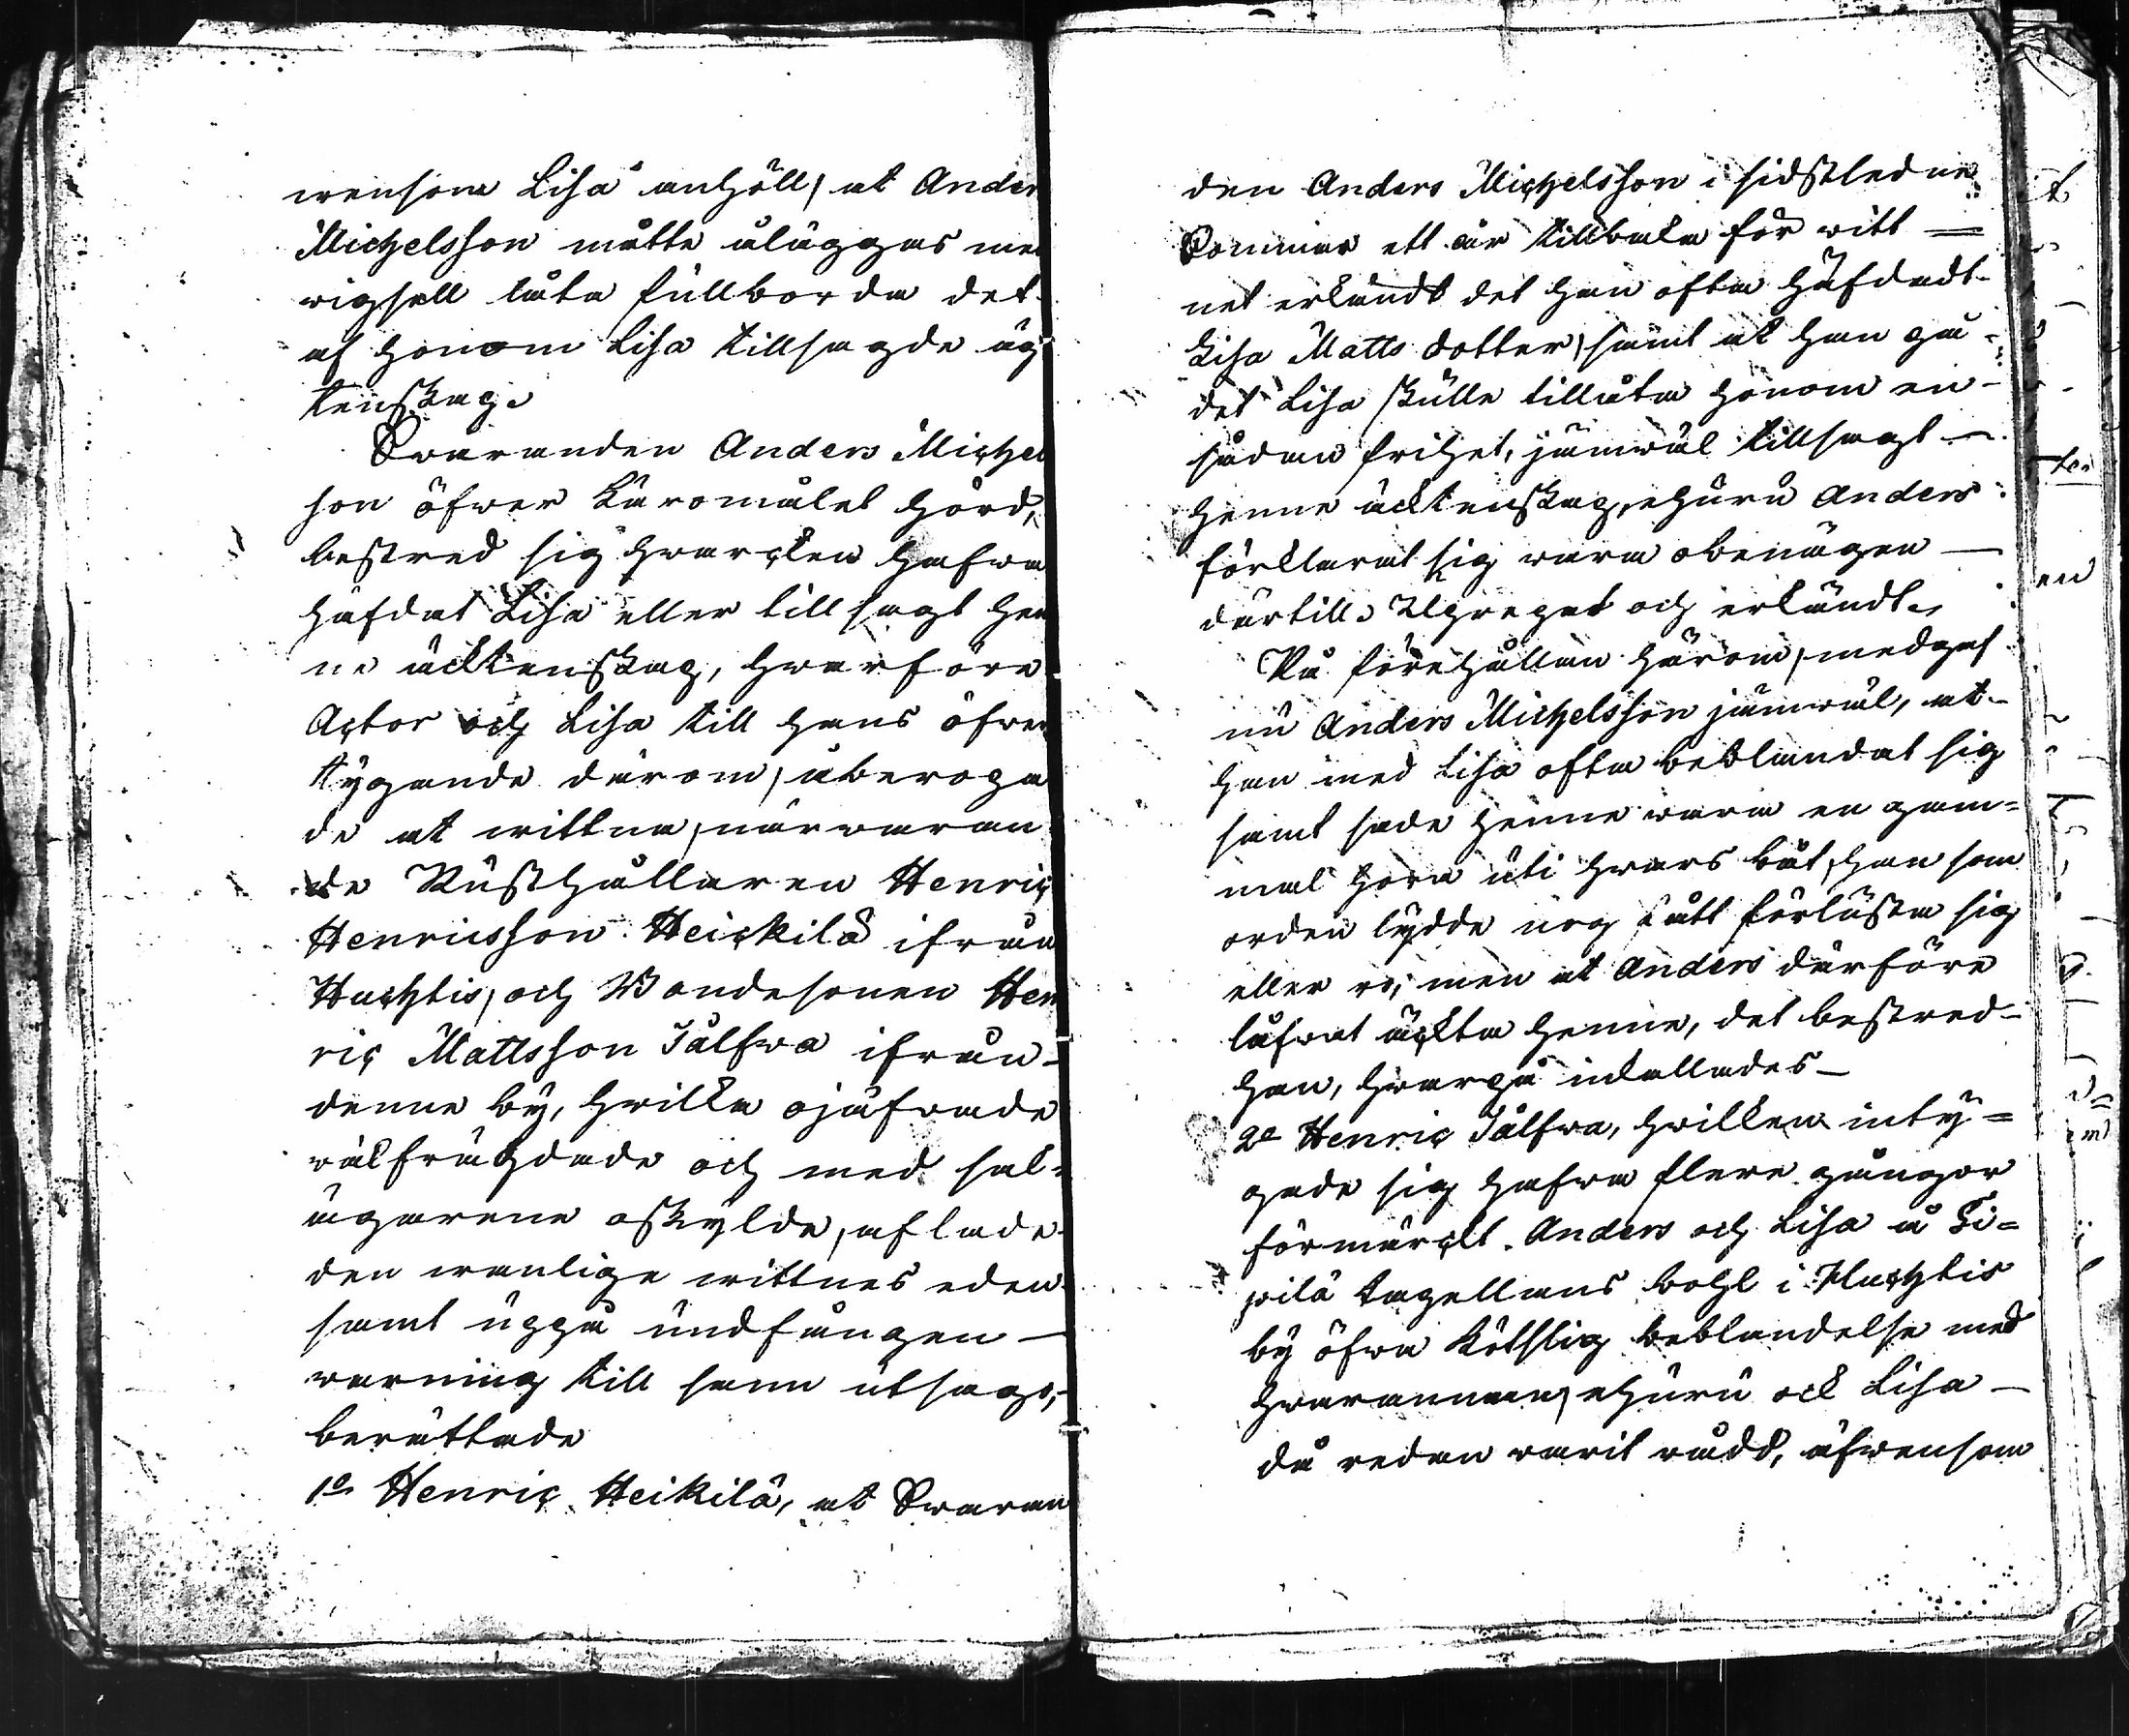 wensom Lisa anhöll, at Ander
Michelsson måtte åläggas me
wigsell låta fullborda det
af honom Lisa tillsagde äg
tenskap.
Swaranden Anders Michel
son öfwer Käromålet hörd,
bestred sig hwarcken hafwa
häfdat Lisa eller tillsagt hen
ne äcktenskap, hwarföre
Actor och Lisa till hans öfwer
tygande därom, åberopa
de at wittna, närwaran
de Rusthållaren Henric
Henricsson Heickilä ifrån
Huchtis, och Bondesonen Hen
ric Mattsson Jålfwa ifrån
denne by, hwilka ojäfwade
wälfrägdade och med sak-
ägarene oskylde, aflade
den wanlige wittnes eden
samt uppå undfången
warning till sann utsago,
berättade
1o Henric Heikilä, at Swaran
den Anders Michelsson i sidstledne
Sommar ett år tillbaka för witt=
net erkändt det han ofta häfdadt
Lisa Matts dotter, samt at han på
det Lisa skulle tillåta honom en
sådan frihet, jämwäl tillsagt
henne äcktenskap, ehuru Anders
förklarat sig wara obenägen
därtill. Uprepat och erkändt.
På förehållan härom, medgaf
nu Anders Michelsson jämwäl, at
han med Lisa ofta beblandat sig
samt sade henne wara en gam=
mal hora uti hwars båt, han som
orden lydde nog fått förlusta sig
eller ro, men at Anders därföre
låfwat äckta henne, det bestred
han, hwarpå inkallades
2o Henric Jålfwa, hwilken inty=
gade sig hafwa flere gångor
förmärckt Anders och Lisa å Si=
pilä kapellans bohl i Huchtis
by öfwa Kötslig beblandelse med
hwarannan, ehuru ock Lisa
då redan warit rådd, äfwensom